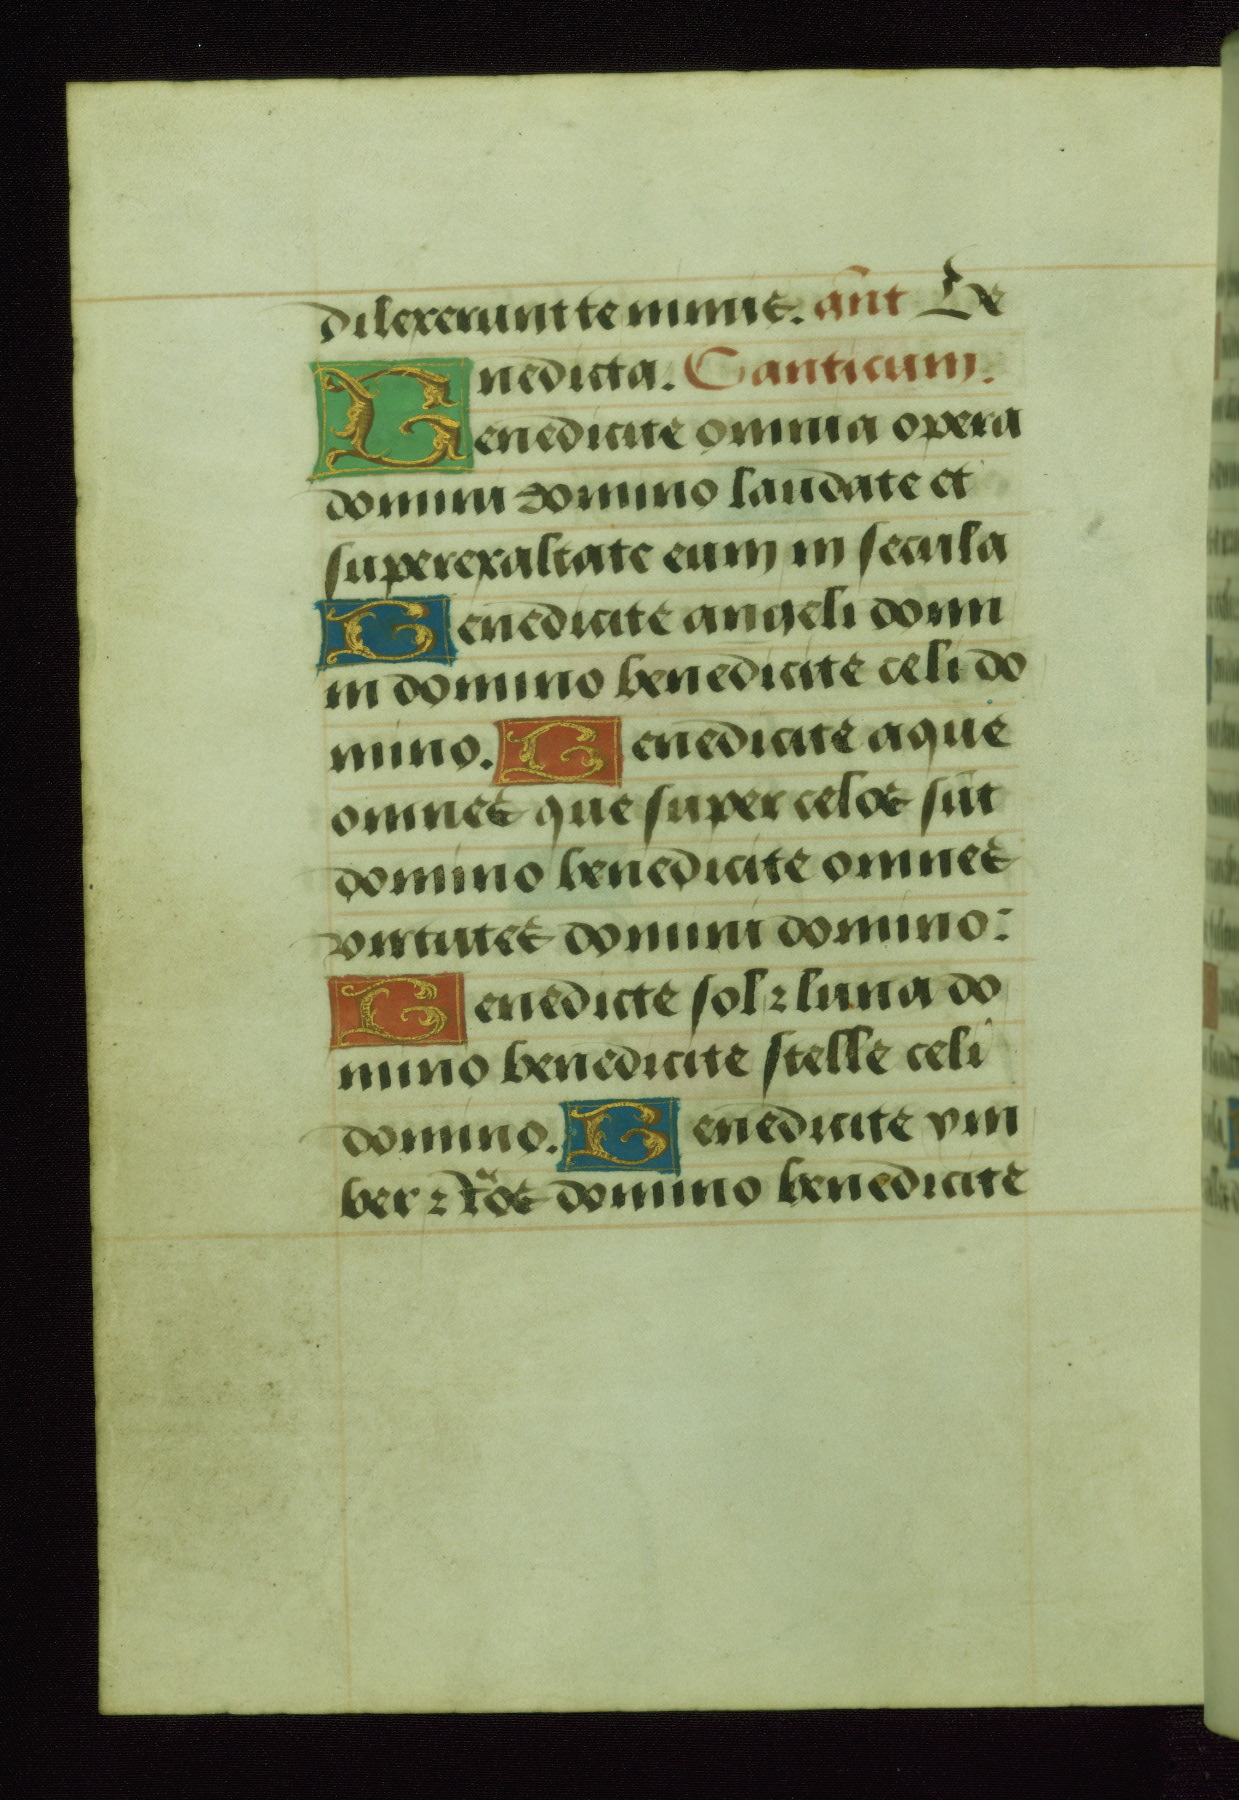 dilexerunt te nimis. ant Be
nedicta. Canticum.
Benedicite omnia opera
domini domino laudate et
superexaltate eum in secula
Benedicite angeli domi
ni domino benedicite celi do
mino. Benedicite aque
omnes que super celos sūt
domino benedicite omnes
virtutes domini domino:
Benedicte sol ⁊ luna do
mino benedicite stelle celi
domino. Benedicite ym
ber ⁊ ros domino benedicite